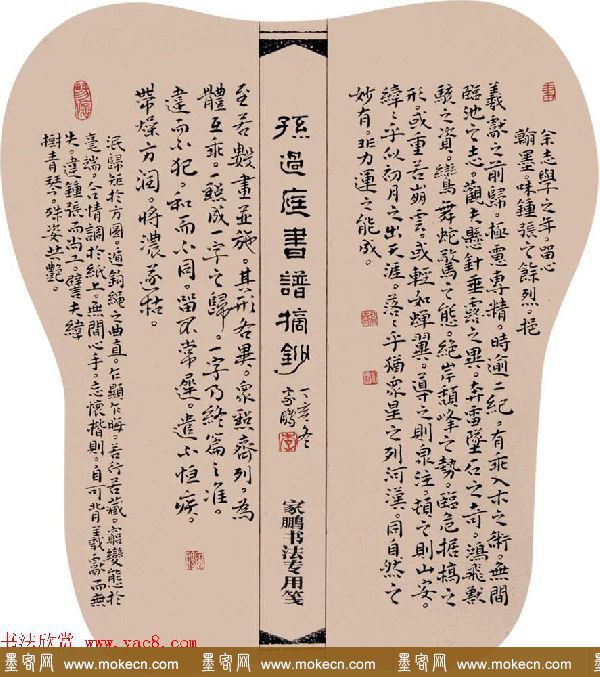 余志學之年。留心
翰墨。味鍾張之餘烈。挹
羲獻之前規。極慮專精。時逾二紀。有乖入木之術。無間
臨池之志。觀夫懸針垂露之異。奔雷墜石之奇。鴻飛獸
駭之資。鸞舞蛇驚之態。絕岸頹峰之勢。臨危据槁之
形。或重若崩雲。或輕如蟬翼。導之則泉注。頓之則山安。
纖々乎似初月之出天涯。落々乎猶衆星之列河漢。同自然之
妙有。非力運之能成。
孫過庭書譜摘鈔
丁亥冬
家鵬
家鹏书法专用笺
至若數畫並施。其形各異。衆點齊列。為
體互乖。一點成一字之規。一字乃終篇之准。
違而不犯。和而不同。留不常遲。遣不恒疾。
帶燥方潤。將濃遂枯。
泯規矩於方圓。遁鉤繩之曲直。乍顯乍晦。若行若藏。窮變態於
毫端。合情調於紙上。無間心手。忘懷楷則。自可背羲獻而無
失。違鍾張而尚工。譬夫絳
樹青琴。殊姿共艷。
书法欣赏 www.yac8.com
墨客网 www.mokecn.com 墨客网 www.mokecn.com 墨客网 www.mokecn.com